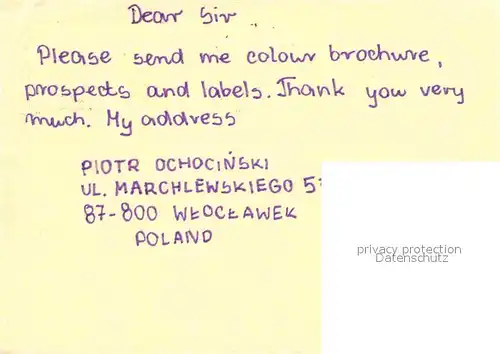 Dear Sir.
Please send me colour brochure,
prospects and labels. Thank you very
much. My address
PIOTR OCHOCIŃSKI
UL. MARCHLEWSKIEGO 5
87-800 WŁOCŁAWEK
POLAND
privacy protection
Datenschutz